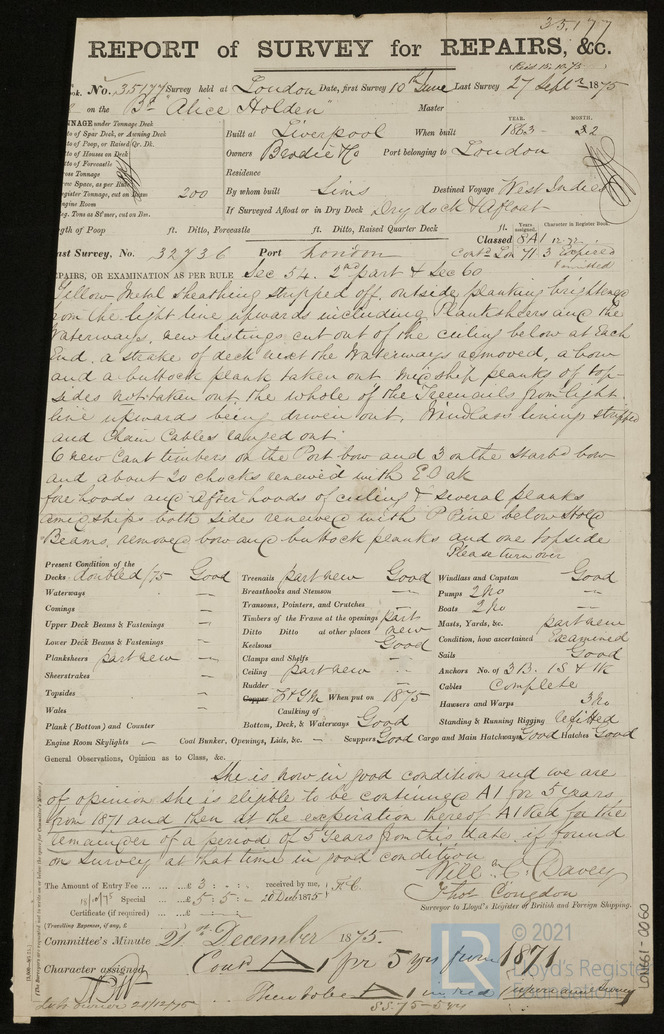 35177
REPORT of SURVEY for REPAIRS, &c.
No. 35177 Survey held at London Date, first Survey 10th June Last Survey 27 Septr 1875
on the Bk "Alice Holden" Master
TONNAGE under Tonnage Deck
of Spar Deck, or Awning Deck
of Poop, or Raised Qr. Dk.
of Houses on Deck
of Forecastle
Gross Tonnage
Crew Space, as per Rule
Register Tonnage, cut on Beam 200
Engine Room
YEAR. MONTH.
Built at Liverpool When built 1863
Owners Brodie & Co Port belonging to London
Residence
By whom built Sims Destined Voyage West Indies
If Surveyed Afloat or in Dry Dock Dry dock & Afloat
Length of Poop ft. Ditto, Forecastle ft. Ditto, Raised Quarter Deck ft.
Years assigned. Character in Register Book.
Last Survey. No. 32736 Port London Classed 8 A1
Contd Lon 71. 3 Expired
REPAIRS, OR EXAMINATION AS PER RULE Sec 54. 2nd part & Sec 60
Yellow Metal Sheathing stripped off, outside planking brightened
from the light line upwards including Planksheers and the
Waterways, new listings cut out of the ceiling below at each
End, a strake of deck next the Waterways removed, a bow
and a buttock plank taken out midship planks of top-
sides not taken out the whole of the Treenails from light
line upwards being driven out. Windlass linings stripped
and Chain Cables ranged out.
6 new Cant timbers on the Port bow and 3 on the starbd bow
and about 20 chocks renewed with E Oak
fore hoods and after hoods of ceiling & several planks
amidships both sides renewed with P Pine below Hold
Beams, removed bow and buttock planks and one topside
Please turn over
Present Condition of the
Decks doubled /75 Good Treenails part new Good Windlass and Capstan Good
Waterways — Breasthooks and Stemson — Pumps 2 No —
Comings — Transoms, Pointers, and Crutches — Boats 2 No —
Upper Deck Beams & Fastenings — Timbers of the Frame at the openings part Masts, Yards, &c. part new
Lower Deck Beams & Fastenings — Ditto Ditto at other places new Condition, how ascertained Examined
Planksheers part new — Keelsons Good Sails Good
Sheerstrakes — Clamps and Shelfs — Anchors No. of 3 B. 1 S & 1 K
Topsides — Ceiling part new — Cables Complete
Wales — Rudder — Hawsers and Warps 3 No
Plank (Bottom) and Counter — Copper F & YM When put on 1875 Standing & Running Rigging refitted
Caulking of Bottom, Deck, & Waterways Good
Engine Room Skylights — Coal Bunker, Openings, Lids, &c. — Scuppers Good Cargo and Main Hatchways Good Hatches Good
General Observations, Opinion as to Class, &c.
She is now in good condition and we are
of opinion she is eligible to be continued A1 for 5 years
from 1871 and then at the expiration thereof A1 Red for the
remainder of a period of 5 Years from this date, if found
on survey at that time in good condition
Will m C. Davey
Thos Congdon
Surveyor to Lloyd's Register of British and Foreign Shipping.
The Amount of Entry Fee ... ...£ 3 : - : - received by me,
Special ... ...£ 5 : 5 : - 20 Decb 1875
Certificate (if required) ... ...£
(Travelling Expenses, if any, £
Committee's Minute 21st December 1875.
Character assigned Contd A 1 for 5 yrs from 1871
Then to be A 1 in red
SS. 75 - 5 yrs
21/12/75
© 2021
Lloyd's Register
Foundation
LON661-0060